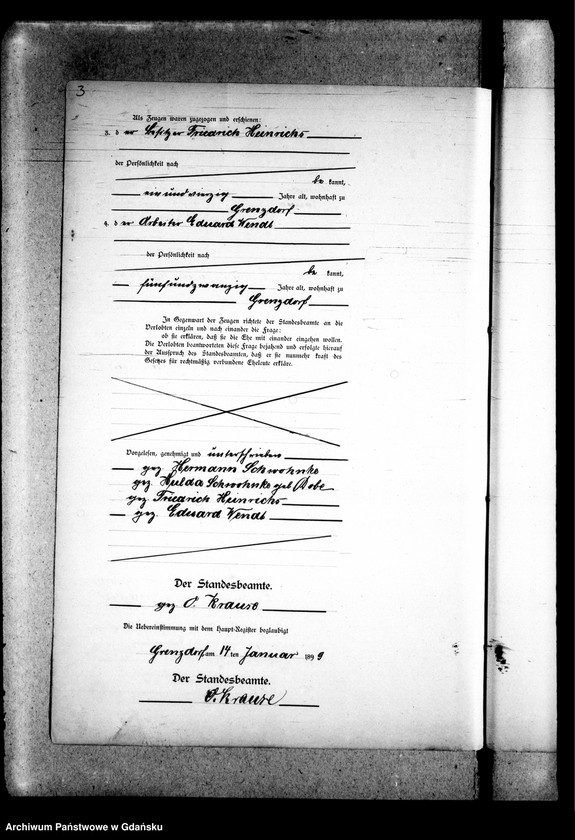 3
Als Zeugen waren zugezogen und erschienen:
3. der Besitzer Friedrich Heinrichs
der Persönlichkeit nach
bekannt,
einundvierzig Jahre alt, wohnhaft zu
Grenzdorf
4. der Arbeiter Eduard Wendt
der Persönlichkeit nach
bekannt,
fünfundzwanzig Jahre alt, wohnhaft zu
Grenzdorf
In Gegenwart der Zeugen richtete der Standesbeamte an die
Verlobten einzeln und nach einander die Frage:
ob sie erklären, daß sie die Ehe mit einander eingehen wollen.
Die Verlobten beantworteten diese Frage bejahend und erfolgte hierauf
der Ausspruch des Standesbeamten, daß er sie nunmehr kraft des
Gesetzes für rechtmäßig verbundene Eheleute erkläre.
Vorgelesen, genehmigt und unterschrieben
gez. Hermann Schwohnke
gez. Hulda Schwohnke geb.
gez. Friedrich Heinrichs
gez. Eduard Wendt
Der Standesbeamte.
gez O. Krause
Die Uebereinstimmung mit dem Haupt-Register beglaubigt
Grenzdorf am 14 ten Januar 1899
Der Standesbeamte.
O. Krause
Archiwum Państwowe w Gdańsku